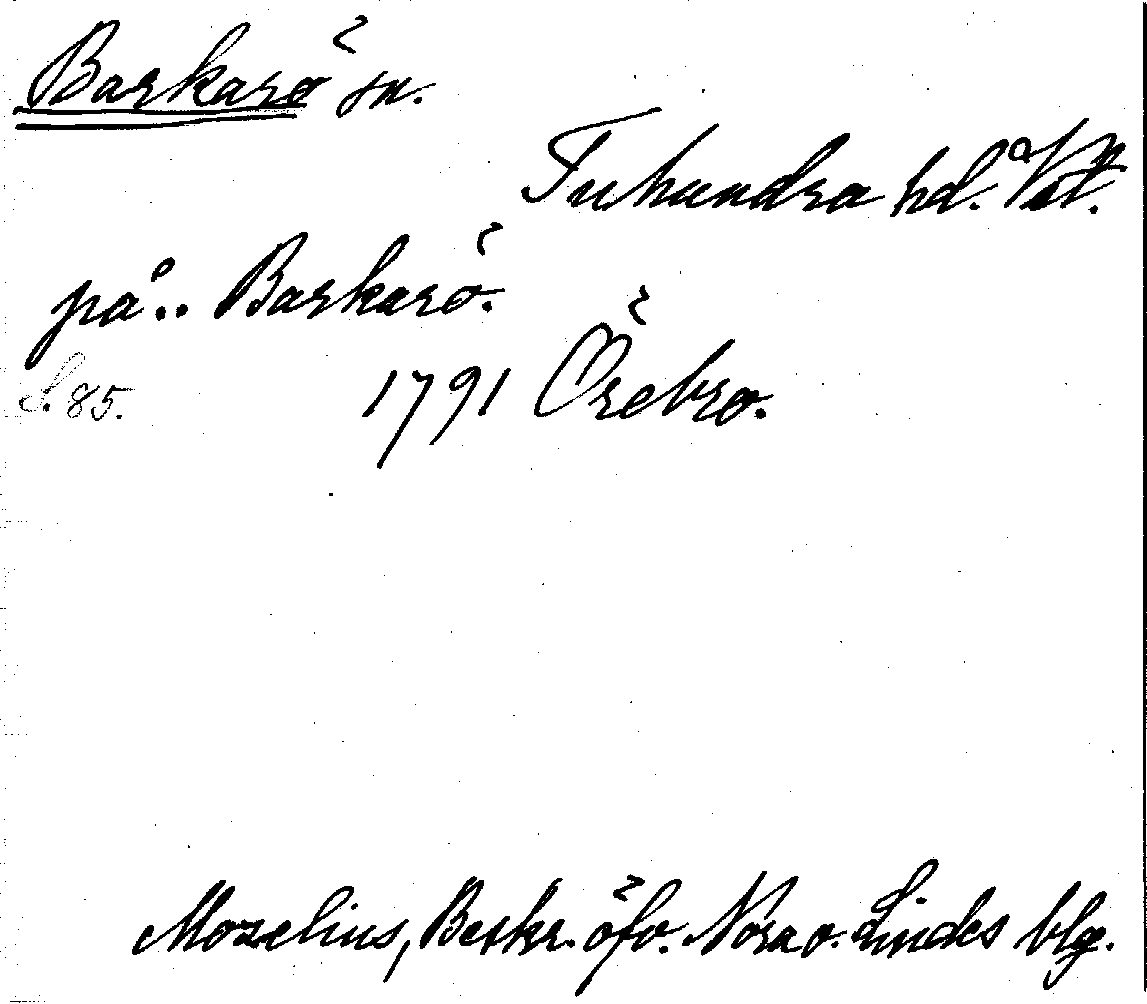 Barkarö sn.
Tuhundra hd. Vstm.
på.. Barkarö.
S. 85. 1791 Örebro.
Mozelius, Beskr. öfv. Nora o. Lindes blg.